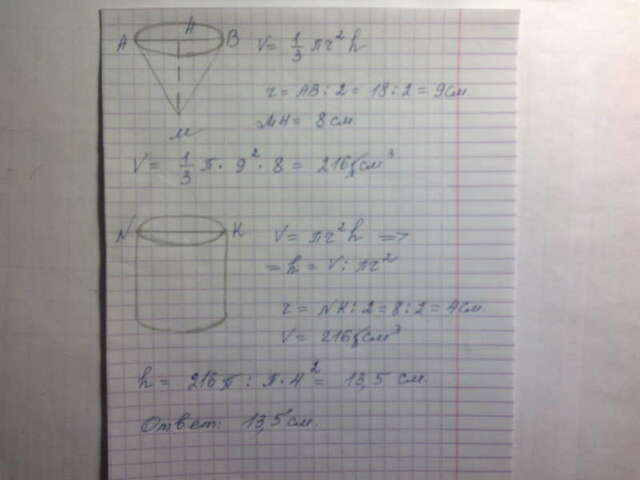 H
A B
M
V = 1/3 πr² h
r = AB : 2 = 18 : 2 = 9 см.
MH = 8 см
V = 1/3 π · 9² · 8 = 216π см³
N K
V = πr² h =>
= h = V : πr²
r = NK : 2 = 8 : 2 = 4 см.
V = 216π см³
h = 216π : π · 4² = 13,5 см.
Ответ: 13,5 см.